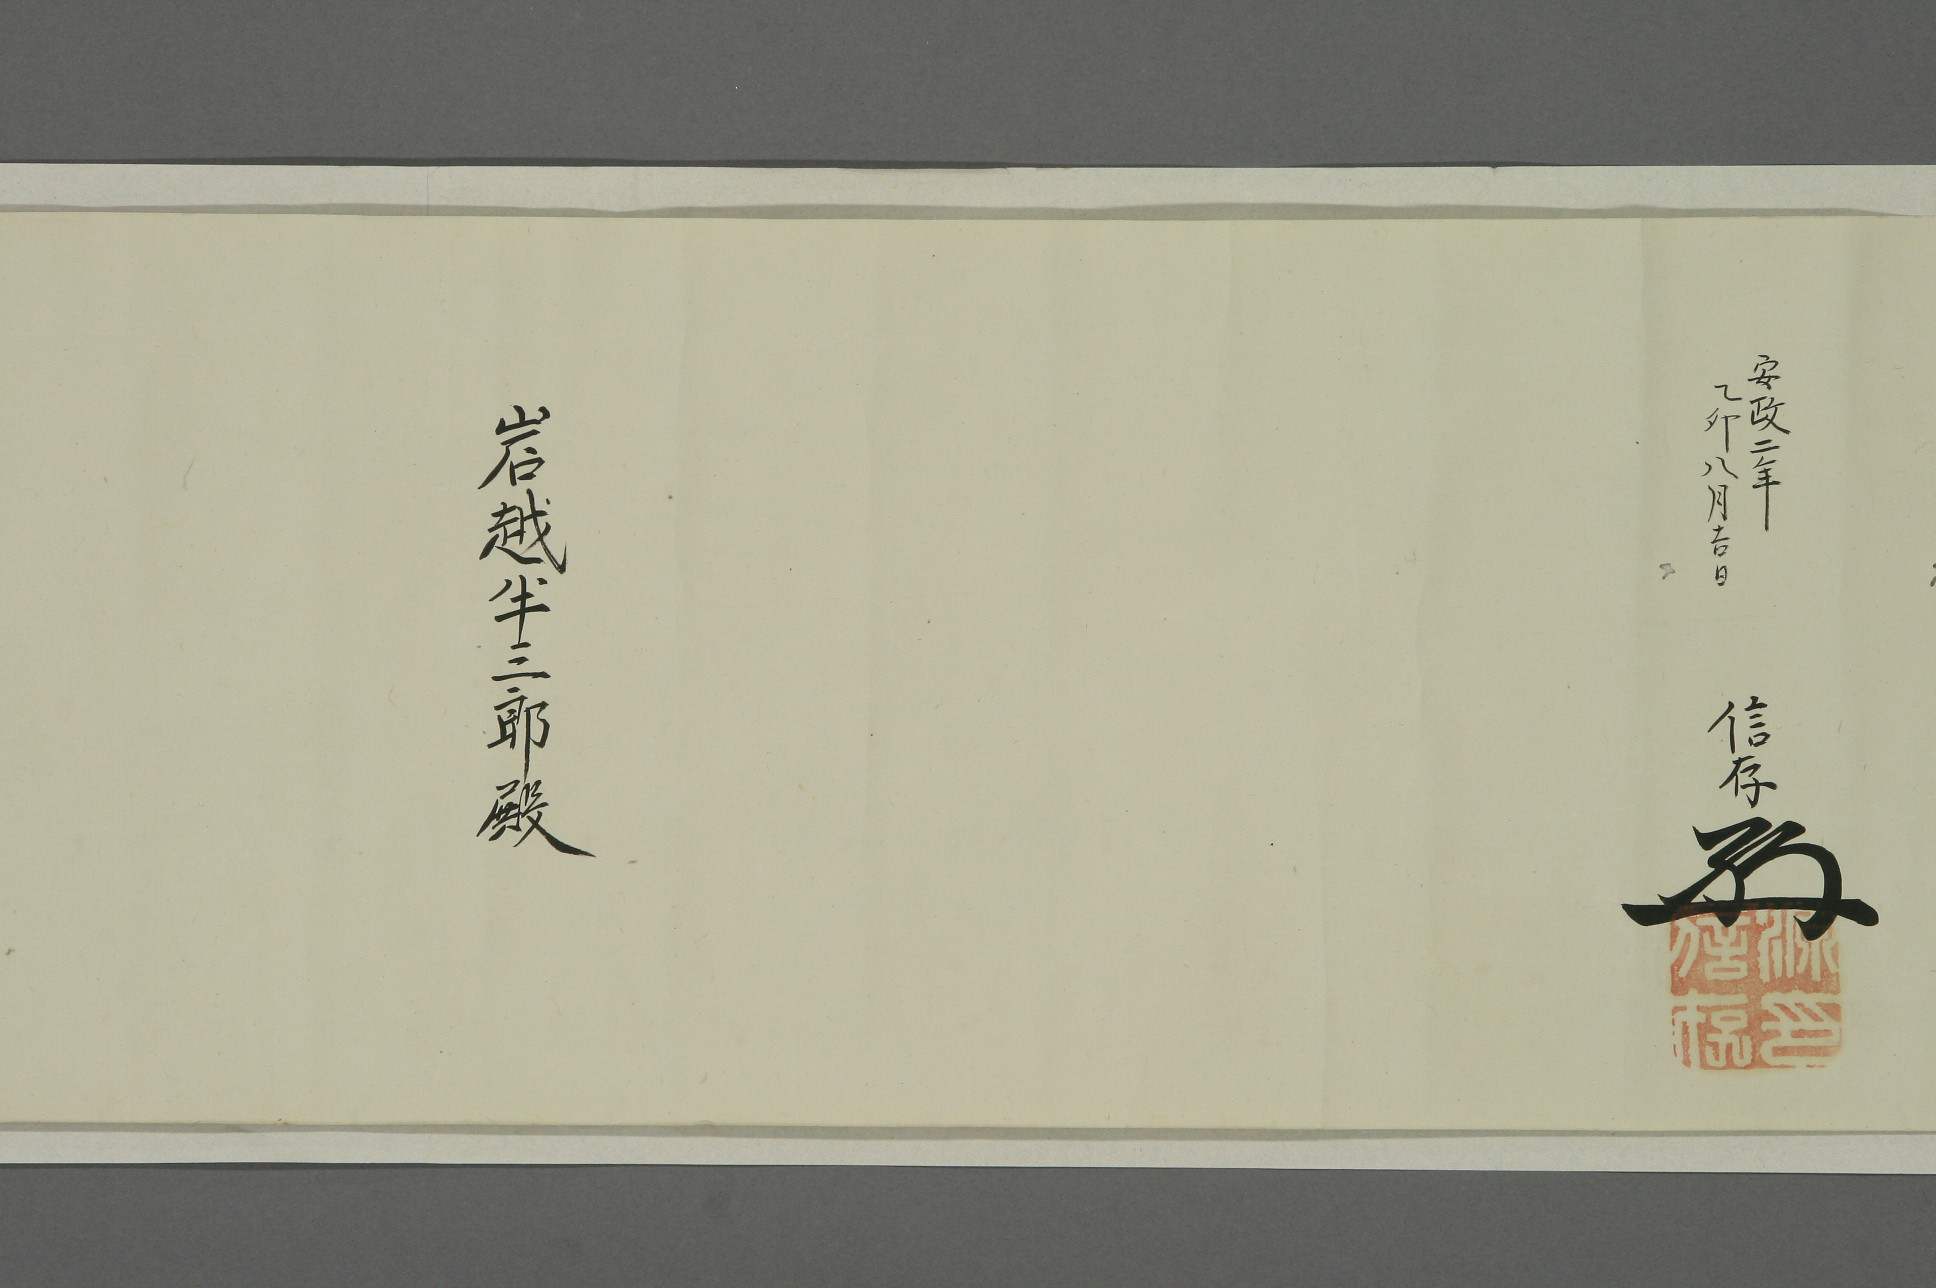 安政二年
乙卯八月吉日
信存
源信存印
岩越半三郎殿